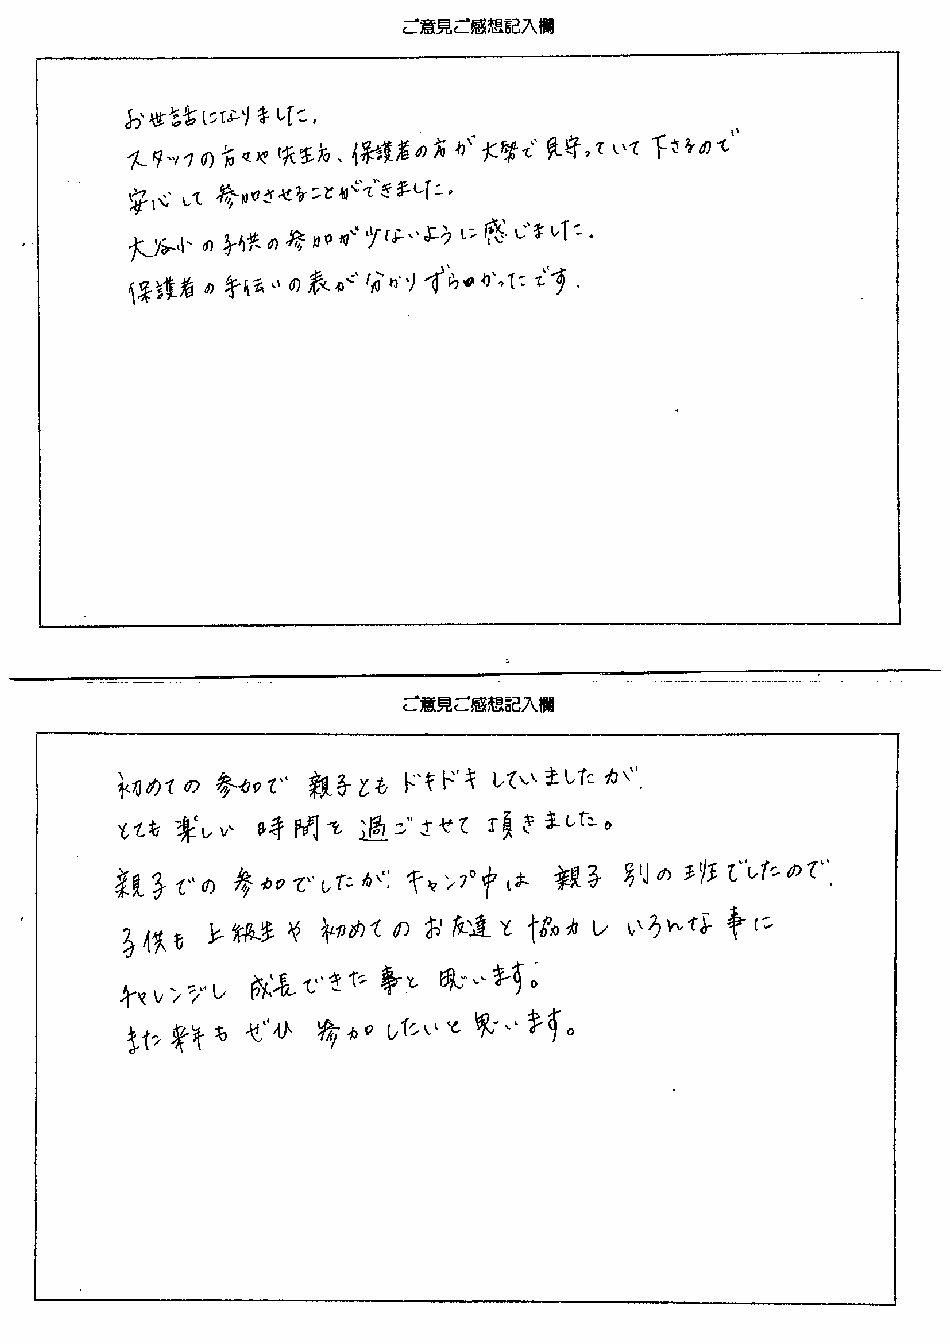 ご意見ご感想記入欄
お世話になりました。
スタッフの方々や先生方、保護者の方が大勢で見守っていて下さるので
安心して参加させることができました。
大谷小の子供の参加が少ないように感じました。
保護者の手伝いの表が分かりずらかったです。
ご意見ご感想記入欄
初めての参加で親子ともドキドキしていましたが、
とても楽しい時間を過ごさせて頂きました。
親子での参加でしたが、キャンプ中は親子別の班でしたので、
子供も上級生や初めてのお友達と協力しいろんな事に
チャレンジし成長できた事と思います。
また来年もぜひ参加したいと思います。